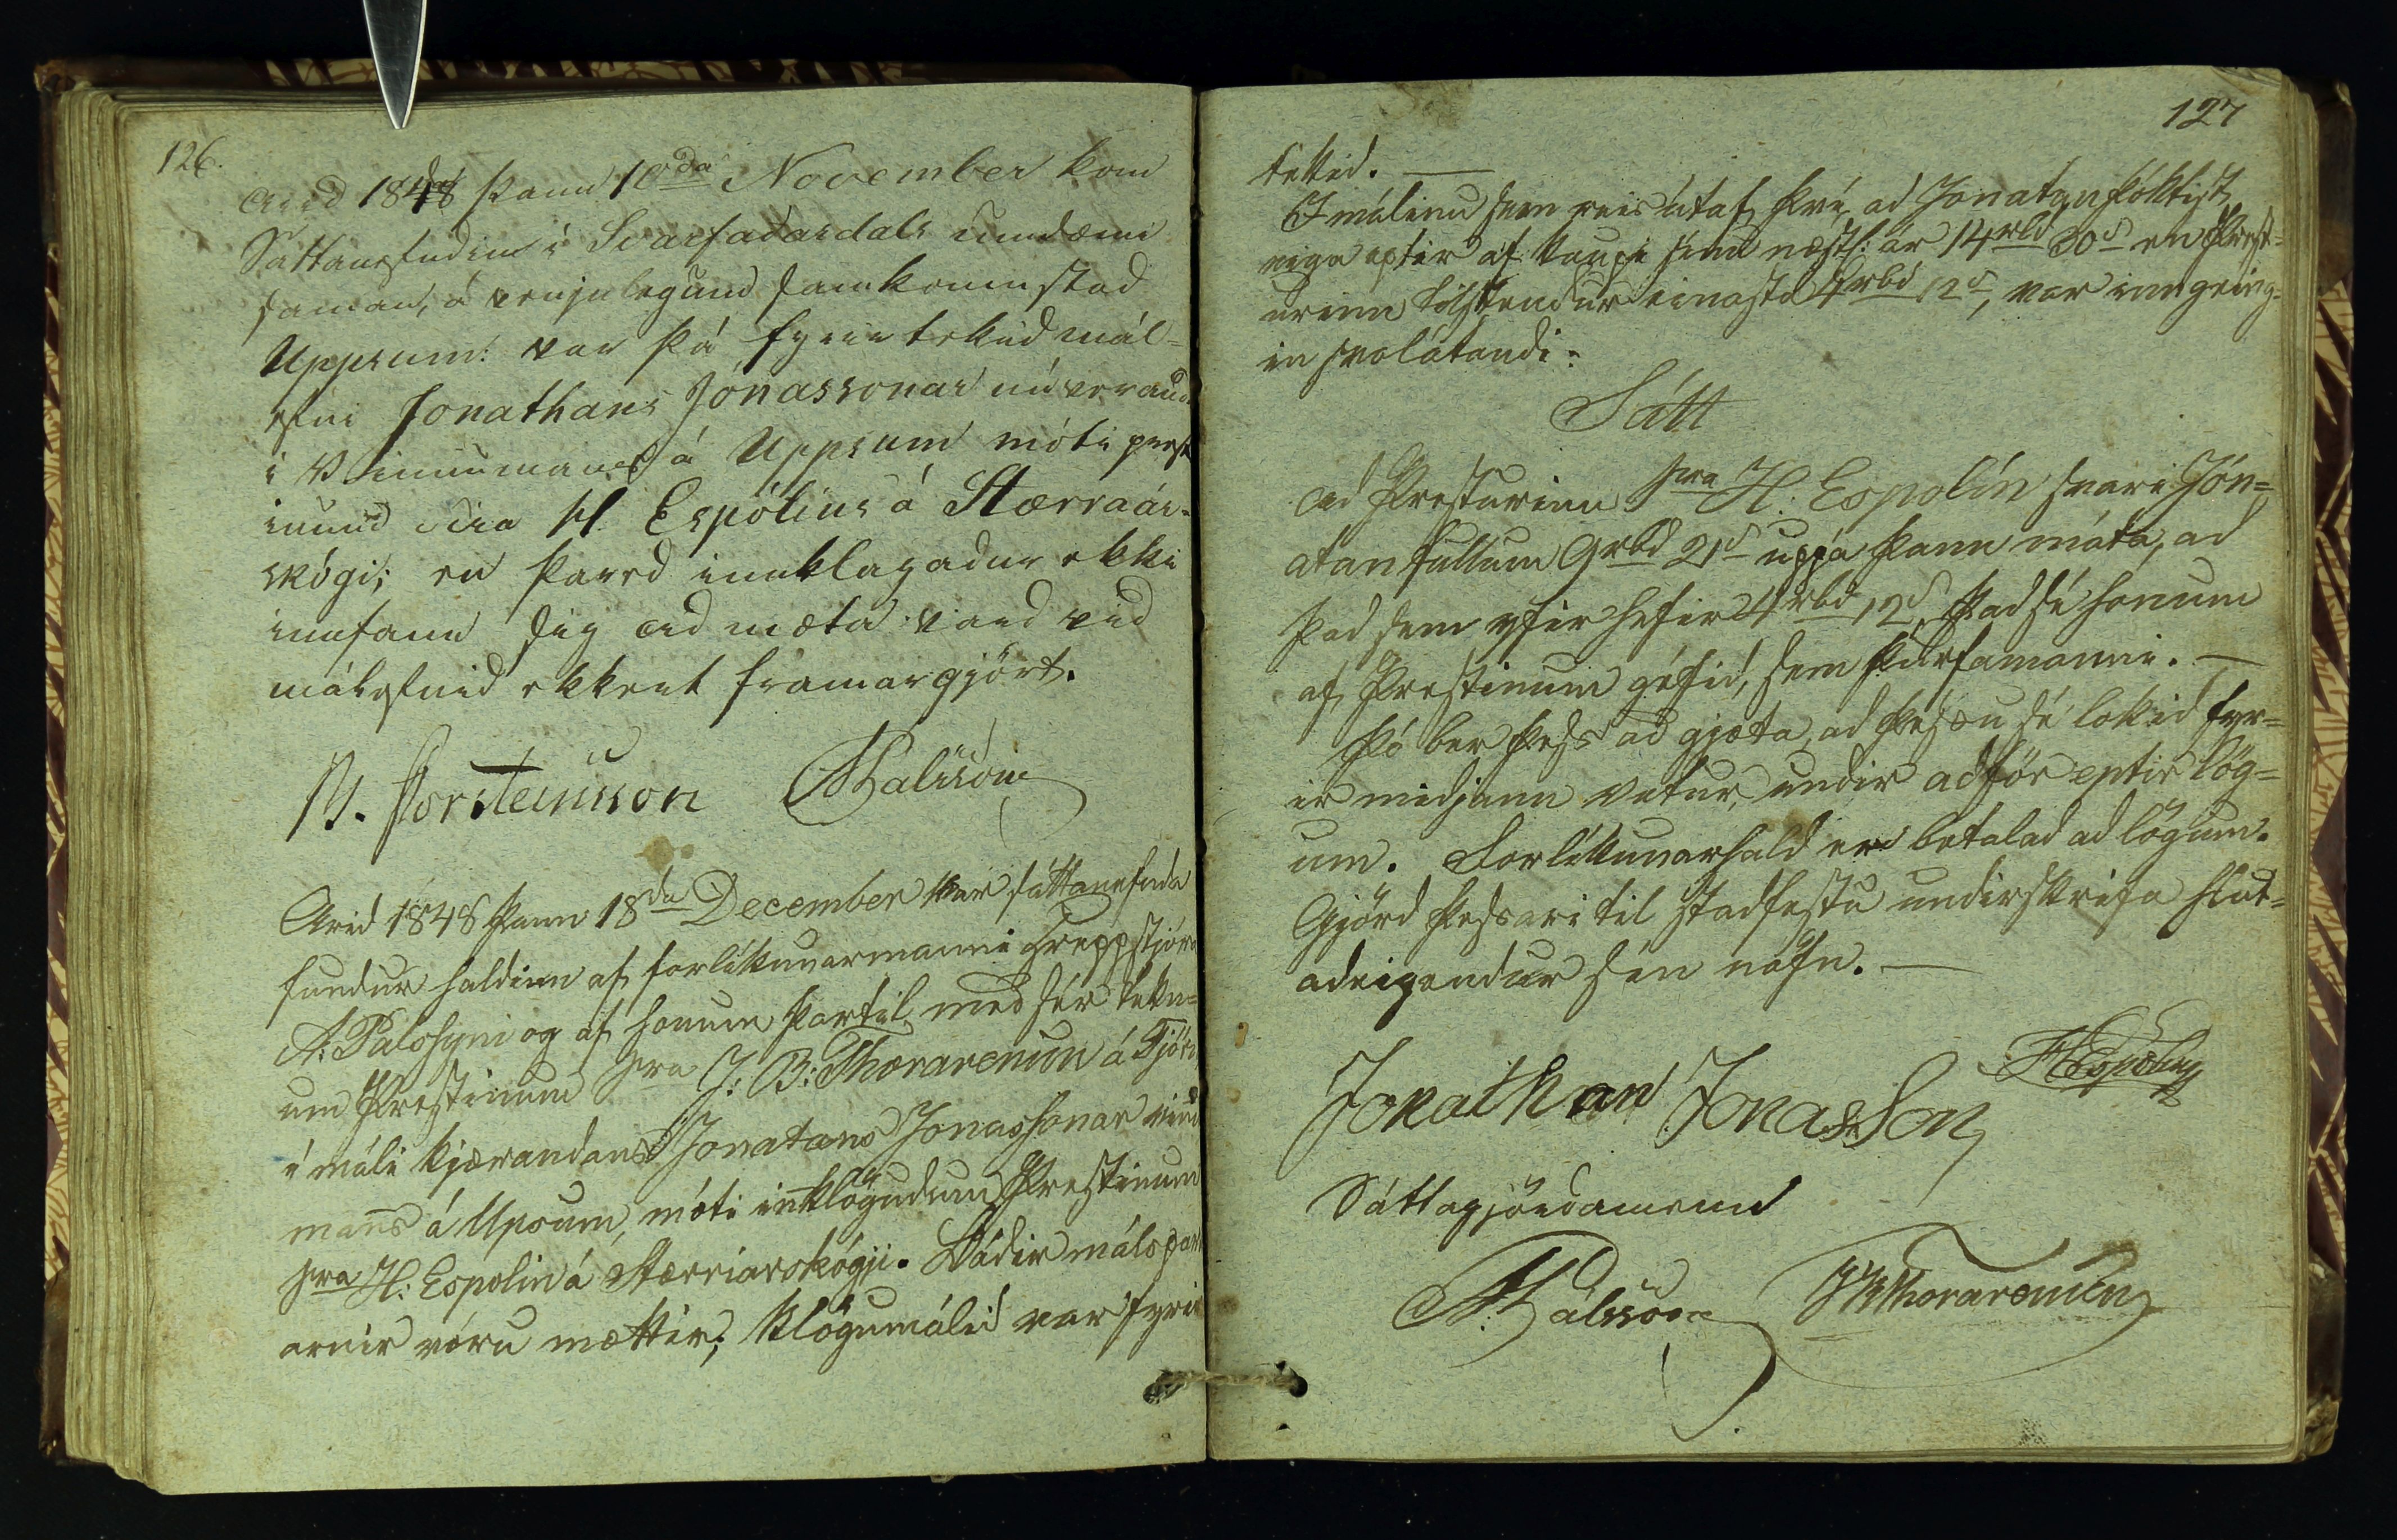 126.
Arid 1848 þann 10da November kom
Sáttanefndin í Svarfadardals umdæmi
saman, á venjulegum samkomustad
Uppsum: var þá fyrirtekid mál=
efni Jonathans Jónassonar núverand
í Vinnumans á Uppsum móti prest
inum sira H. Espólins á Stærraár-
skógi; en þared innklagadur ekki
innfann sig ad mæta vard vid
málefnid ekkert framar gjört.
Þ. Þorsteinsson APálsson
Arid 1848 þann 18da December var sáttanefnda
fundur haldinn af forlíkunarmanni Hreppstjóra
A: Pálssyni og af honum þartil med sér tekn=
um Prestinum sra J: B: Thorarensen á Tjörn
í máli kjærandans Jonatans Jonassonar vinnu
mans á Upsum, móti innklögudum Prestinum
sra H: Espolin á Stærriarskógji. Bádir málspart
arnir vóru mættir; klögumálid var fyrir
127
tekid. —
I málinu sem reis útaf því, ad Jonatan þóktist
eiga eptir af kaupi sínu næstl: ár 14rbd 30s en Prest=
urinn tilstendur einasta 4rbd 12s, var inngeing=
in svolátandi:
Sátt
ad Presturinn sra H. Espolín svari Jón=
atan fullum 9rbd 21s uppá þann máta, ad
þad sem yfir hefir 4rbd 12s, þad sé honum
af Prestinum géfid, sem þurfamanni. —
Þó ber þess ad gjæta, ad þessu sé lokid fyr=
ir midjann vetur, undir adför eptir lög=
um. Forlíkunarhald er betalad ad lögum.
Gjörd þessari til stadfestu undirskrifa hlut=
adeigendur sín nöfn. —
HEspolin
Jonathan Jonasson
Sáttagjördamenn
APálsson JBThorarensen